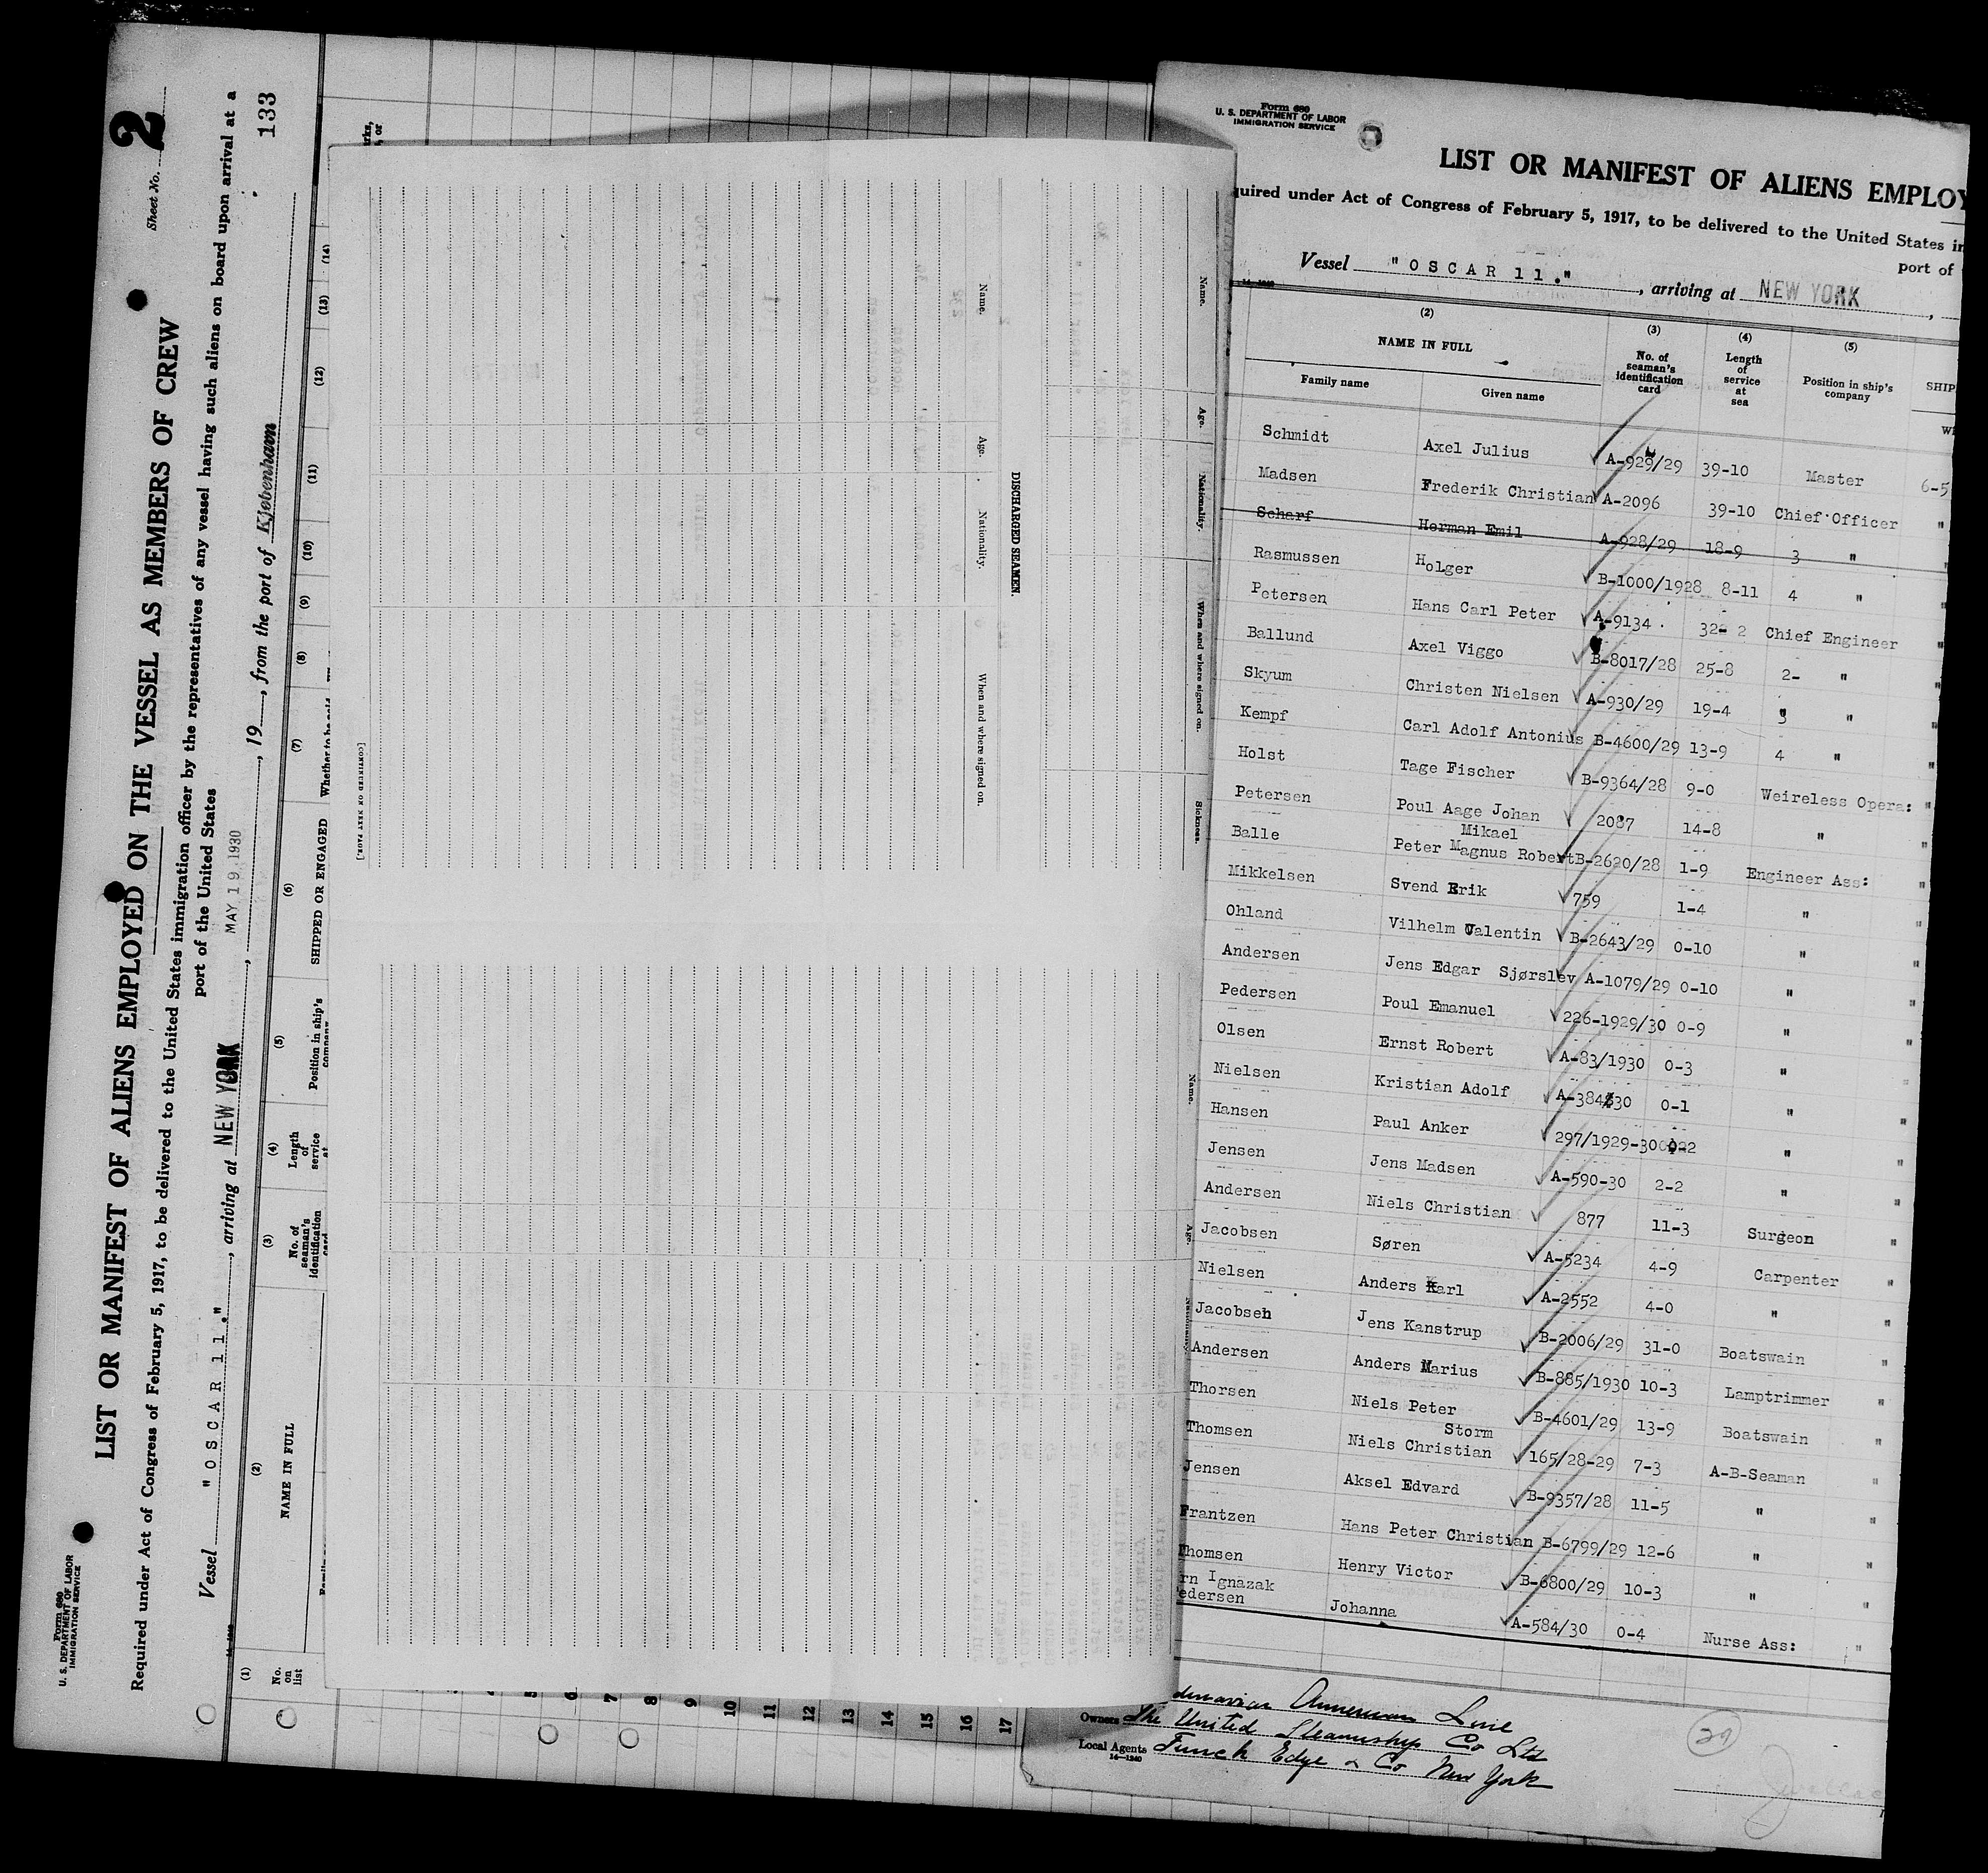 Form 680
U. S. DEPARTMENT OF LABOR
IMMIGRATION SERVICE
Sheet No. 2
LIST OR MANIFEST OF ALIENS EMPLOYED ON THE VESSEL AS MEMBERS OF CREW
Required under Act of Congress of February 5, 1917, to be delivered to the United States immigration officer by the representatives of any vessel having such aliens on board upon arrival at a
port of the United States
133
Vessel "OSCAR 11.", arriving at NEW YORK, MAY 19, 1930, 19, from the port of Kjobenhavn
(1) (2) (3) (4) (5) (6) (7) (8) (9) (10) (11) (12) (13) (14)
No. on list
NAME IN FULL
No. of seaman's identification
Length of service
Position in ship's
SHIPPED OR ENGAGED
Whether to be
5 6 7 8 9 10 11 12 13 14 15 16 17
[CONTINUED ON NEXT PAGE.]
DISCHARGED SEAMEN.
Name. Age. Nationality. When and where signed on.
Name. Age. Nationality. When and where signed on. Sickness.
Name. Age.
Form 680
U. S. DEPARTMENT OF LABOR
IMMIGRATION SERVICE
LIST OR MANIFEST OF ALIENS EMPLOY
quired under Act of Congress of February 5, 1917, to be delivered to the United States i
port of
Vessel "OSCAR 11.", arriving at NEW YORK,
(2) (3) (4) (5)
NAME IN FULL
Family name
Given name
No. of seaman's identification card
Length of service at sea
Position in ship's company
SHIP
Schmidt Axel Julius A-929/29 39-10 Master 6-5
Madsen Frederik Christian A-2096 39-10 Chief Officer "
Scharf Herman Emil A-928/29 18-9 3 "
Rasmussen Holger B-1000/1928 8-11 4 "
Petersen Hans Carl Peter A-9134 32-2 Chief Engineer
Ballund Axel Viggo B-8017/28 25-8 2- "
Skyum Christen Nielsen A-930/29 19-4 3 "
Kempf Carl Adolf Antonius B-4600/29 13-9 4 "
Holst Tage Fischer B-9364/28 9-0 Weireless Opera: "
Petersen Poul Aage Johan 2087 14-8 "
Balle Peter Mikael Magnus Robert B-2620/28 1-9 Engineer Ass: "
Mikkelsen Svend Erik 759 1-4 "
Ohland Vilhelm Valentin B-2643/29 0-10 "
Andersen Jens Edgar Sjørslev A-1079/29 0-10 "
Pedersen Poul Emanuel 226-1929/30 0-9 "
Olsen Ernst Robert A-83/1930 0-3 "
Nielsen Kristian Adolf A-384/30 0-1 "
Hansen Paul Anker 297/1929-30 "
Jensen Jens Madsen A-590-30 2-2 "
Andersen Niels Christian 877 11-3 Surgeon "
Jacobsen Søren A-5234 4-9 Carpenter "
Nielsen Anders Karl A-2552 4-0 "
Jacobsen Jens Kanstrup B-2006/29 31-0 Boatswain "
Andersen Anders Marius B-885/1930 10-3 Lamptrimmer "
Thorsen Niels Peter B-4601/29 13-9 Boatswain "
Thomsen Niels Storm Christian 165/28-29 7-3 A-B-Seaman "
Jensen Aksel Edvard B-9357/28 11-5 " "
Frantzen Hans Peter Christian B-6799/29 12-6 " "
Thomsen Henry Victor B-6800/29 10-3 " "
rn Ignazak
edersen Johanna A-584/30 0-4 Nurse Ass: "
American Line
Owners The United Steamship Co Ltd
Local Agents Funch Edye & Co New York
14-1240
29